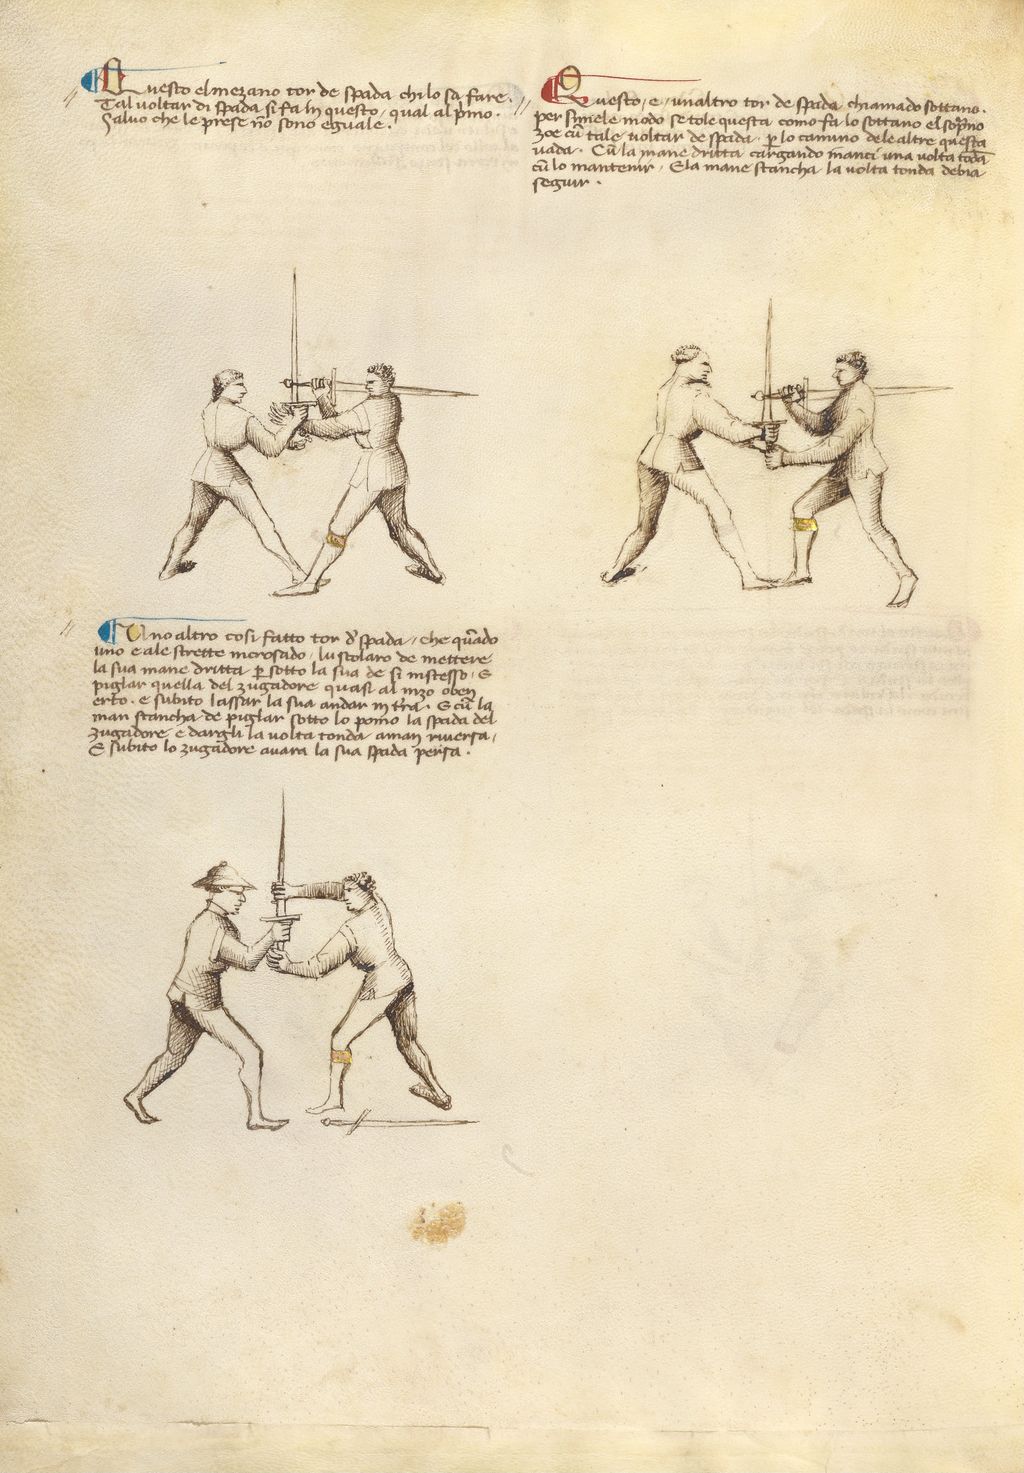 Questo el mezano tor de spada chi lo sa fare.
Tal voltar di spada si fa in questo, qual al pimo.
Salvo che le prese nō sono eguale.
Questo, e, unaltro tor de spada chiamado sottano.
per simele modo se tole questa como fa lo sottano el sop̄no
zoe cū tale voltar de spada. p lo camino dele altre questa
vada. Cū la mane dritta cargando inanci una volta toda
cū lo mantenir, E la mane stancha la volta tonda debia
seguir.
Uno altro cosi fatto tor d' spada, che quādo
uno e ale strette incrosado, lu scolaro de mettere
la sua mane dritta p sotto la sua de si instesso, E
piglar quella del zugadore quasi al mzo o ben
erto. e subito lassar la sua andar in t'ra. E cū la
man stancha de piglar sotto lo pomo la spada del
zugadore e dargli la volta tonda a man riversa,
E subito lo zugadore avara la sua spada persa.